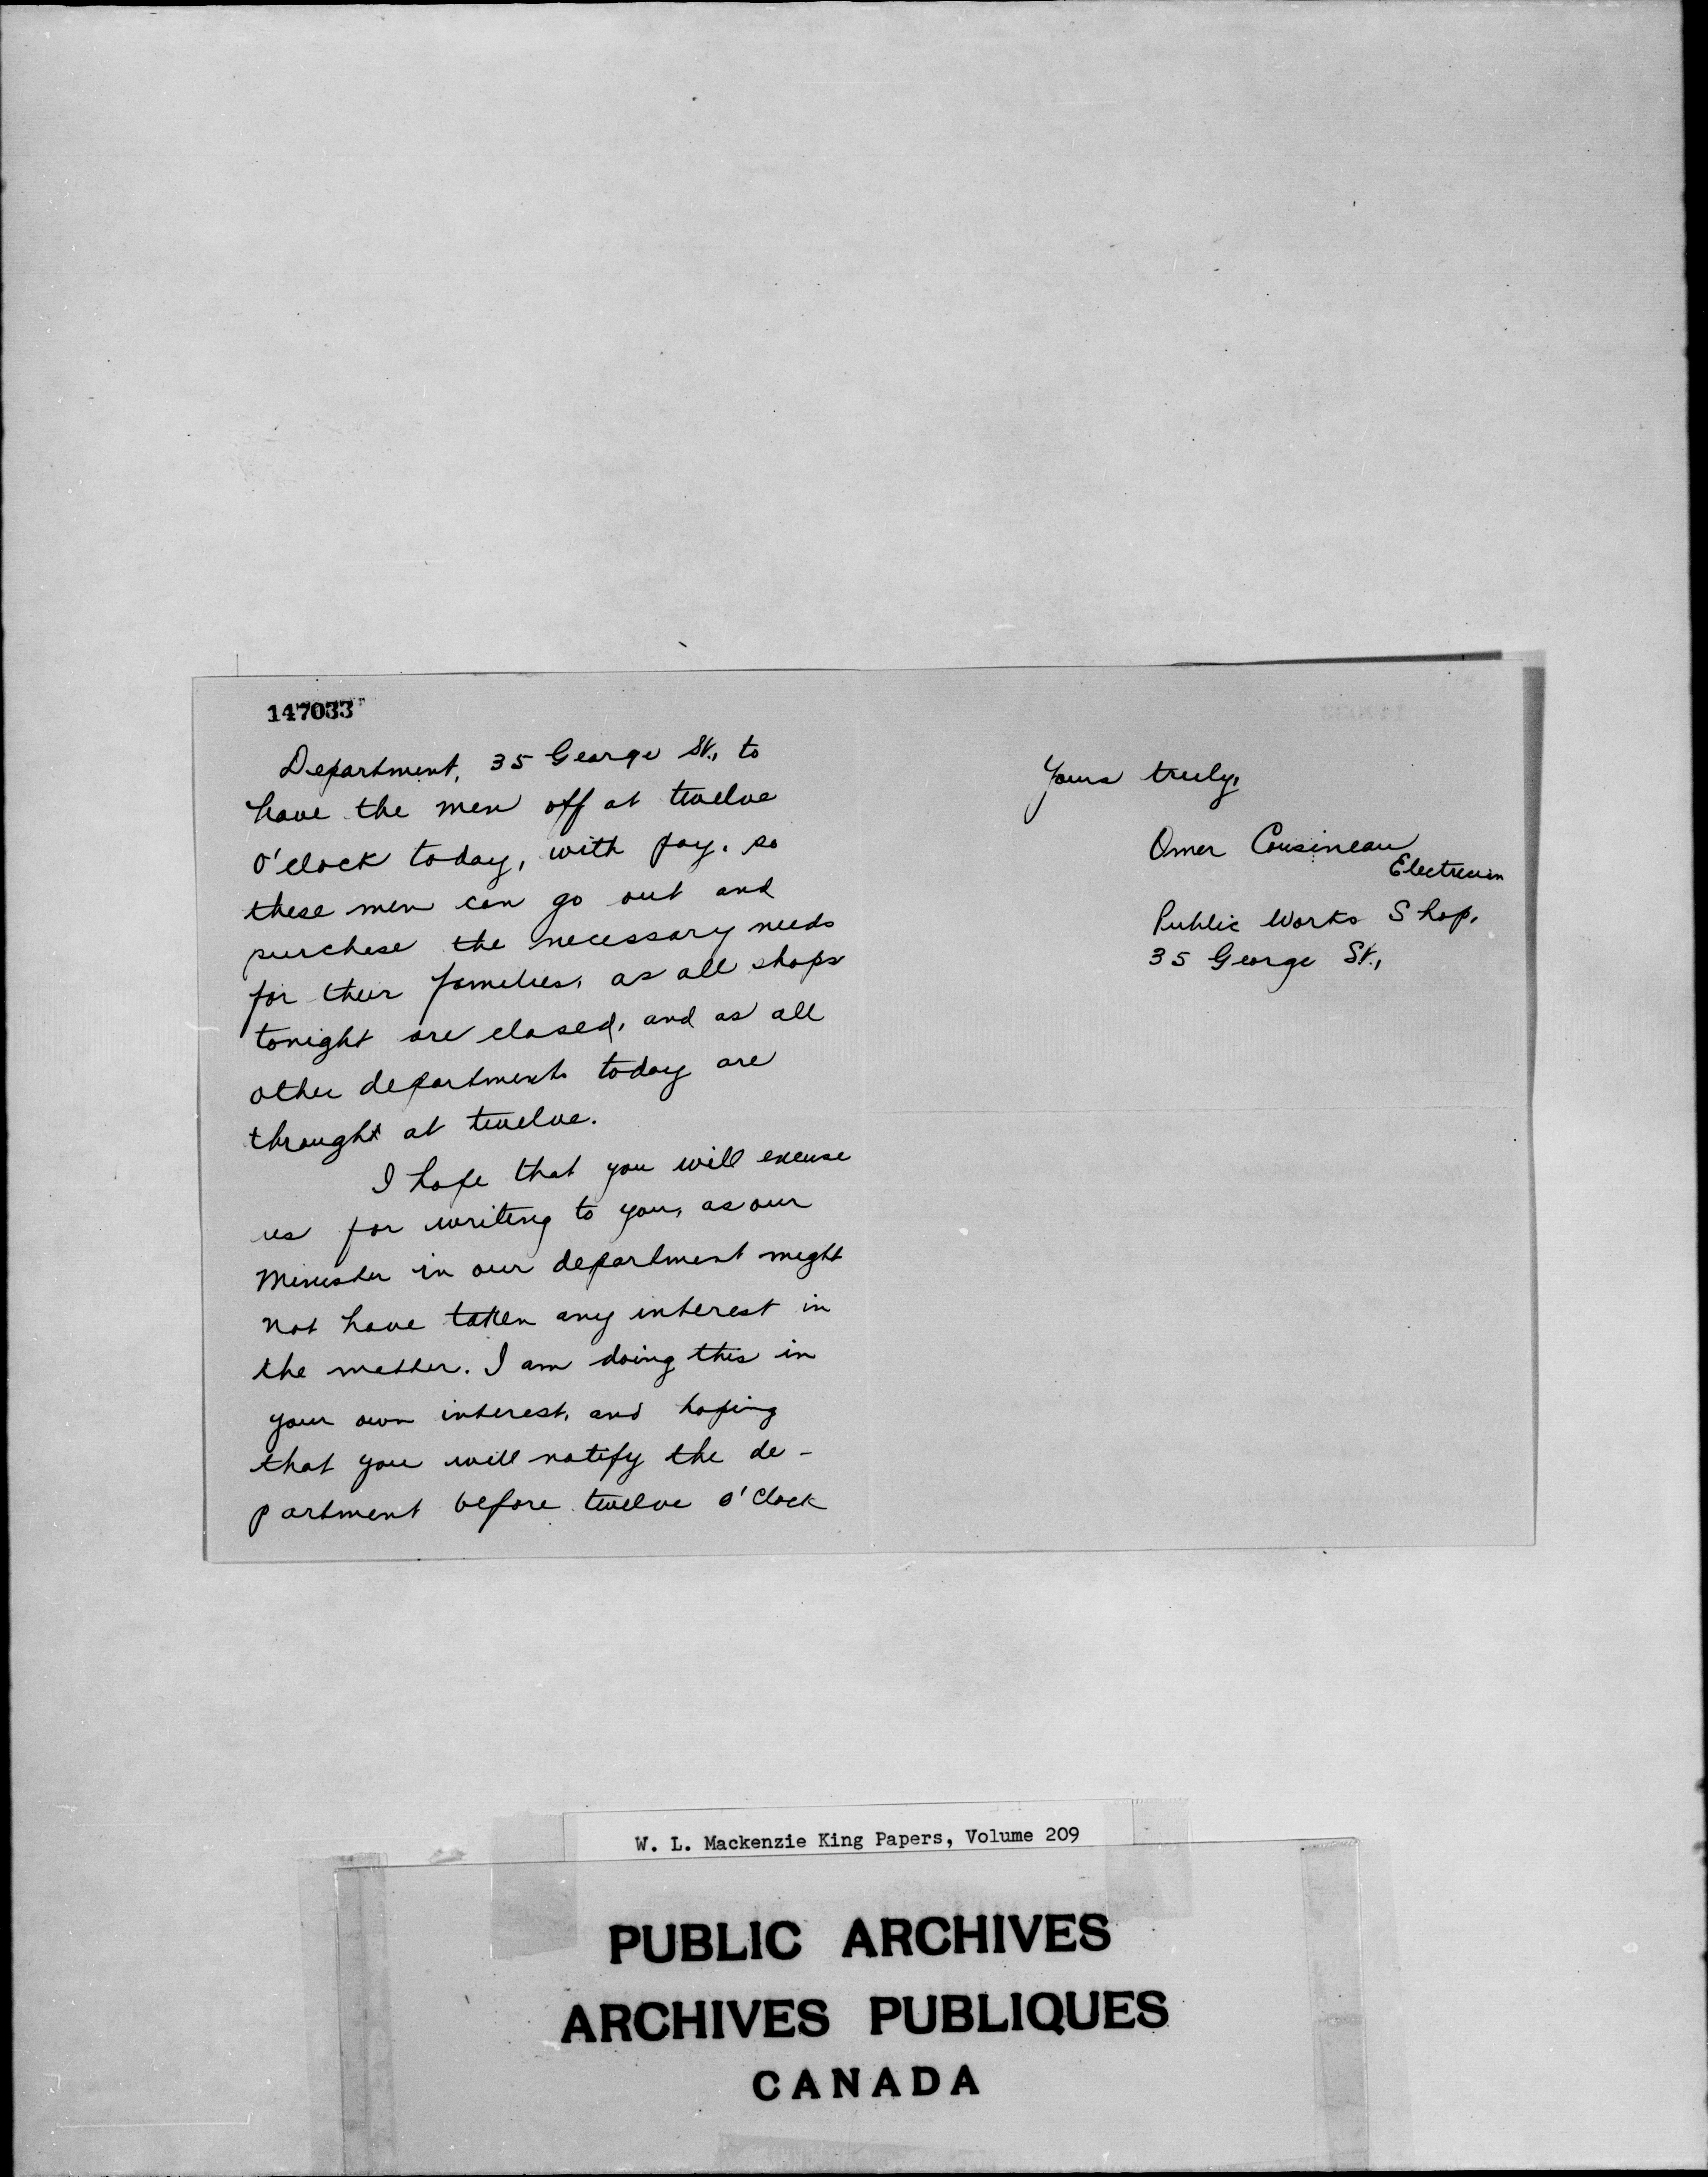 147033
Department, 35 George St., to
have the men off at twelve
O'clock today, with pay, so
these men can go out and
purchese the necessary needs
for their families, as all shops
tonight are closed, and as all
other departments today are
throught at twelve.
I hope that you will excuse
us for writing to you, as our
Minister in our department might
not have taken any interest in
the matter. I am doing this in
your own interest, and hoping
that you will notify the de-
partment before twelve o'clock
Yours truly,
Omer Cousineau
Electrician
Public Works Shop,
35 George St.,
W. L. Mackenzie King Papers, Volume 209
PUBLIC ARCHIVES
ARCHIVES PUBLIQUES
CANADA